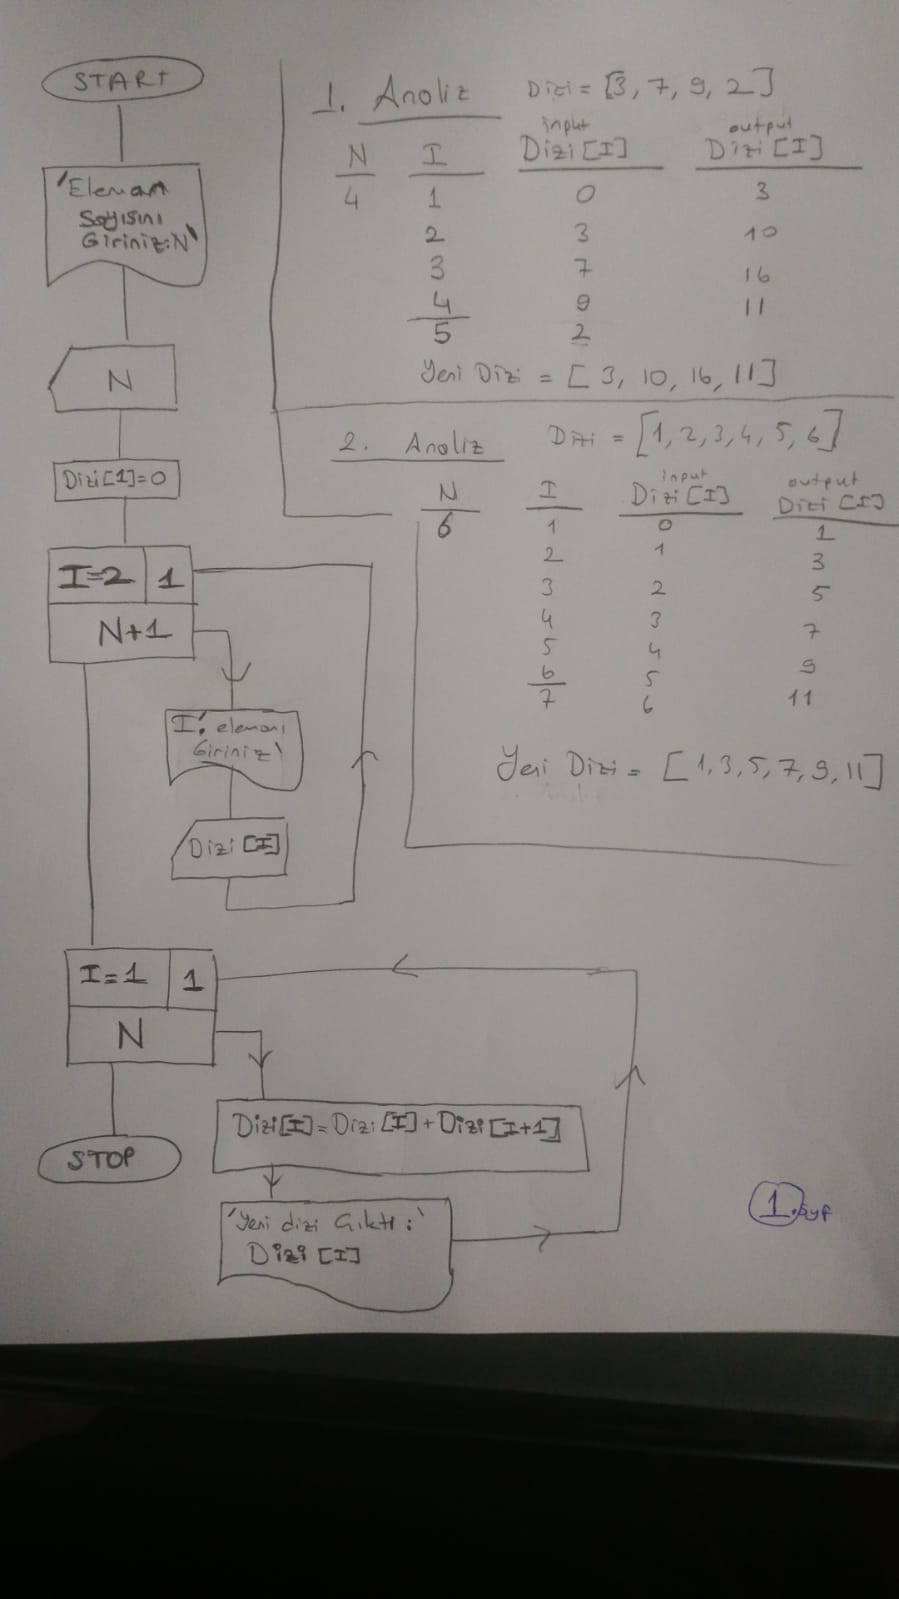 START
'Eleman
Sayısını
Giriniz:N'
N
Dizi[1]=0
I=2 1
N+1
I'. elemanı
Giriniz'
Dizi [I]
I=1 1
N
Dizi[I]=Dizi[I]+Dizi[I+1]
'Yeni dizi Çıktı:'
Dizi [I]
STOP
1. Analiz Dizi = [3, 7, 9, 2]
input output
N I Dizi[I] Dizi[I]
4 1 0 3
2 3 10
3 7 16
4 9 11
5 2
Yeni Dizi = [3, 10, 16, 11]
2. Analiz Dizi = [1,2,3,4,5,6]
input output
N I Dizi[I] Dizi[I]
6 1 0 1
2 1 3
3 2 5
4 3 7
5 4 9
6 5 11
7 6
Yeni Dizi = [1,3,5,7,9,11]
1.syf